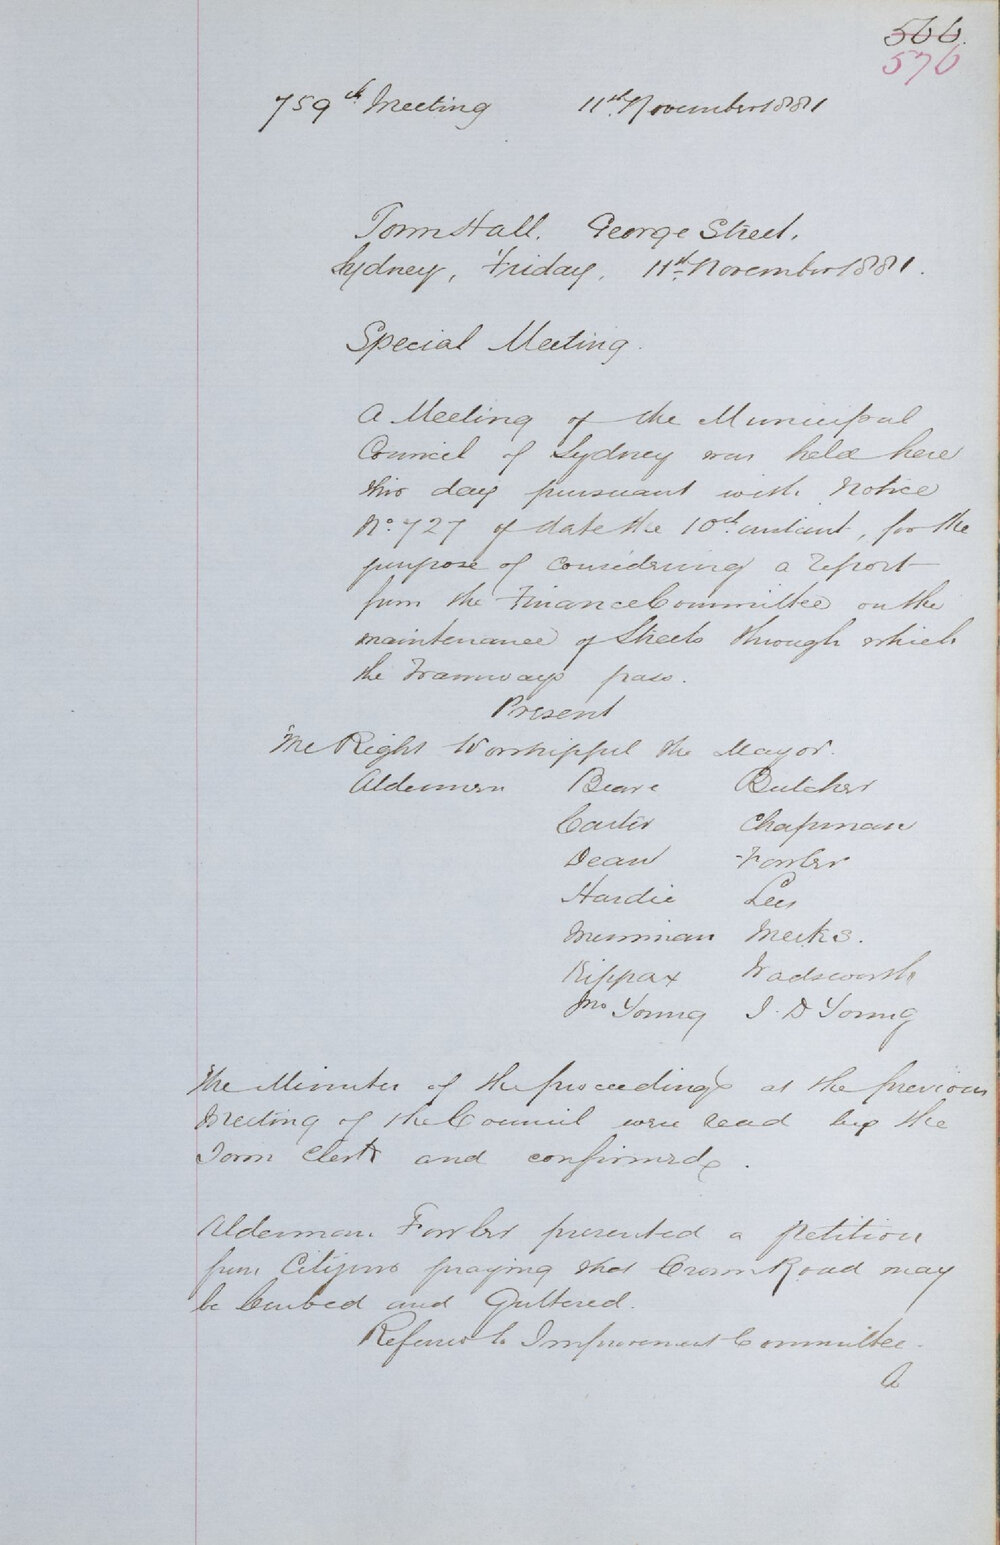 566.
576
759th Meeting 11th November 1881
Town Hall, George Street,
Sydney, Friday, 11th November 1881.
Special Meeting.
A Meeting of the Municipal
Council of Sydney was held here
this day pursuant with Notice
No. 727 of date the 10th instant, for the
purpose of considering a report
from the Finance Committee on the
maintenance of Streets through which
the Tramways pass.
Present
The Right Worshipful the Mayor.
Aldermen Beare Butcher
Carter Chapman
Dean Fowler
Hardie Lees
Merriman Meeks.
Kippax Wadsworth
Jno. Young J. D Young
The Minutes of the proceedings at the previous
Meeting of the Council were read by the
Town Clerk and confirmed.
Alderman Fowler presented a petition
from Citizens praying that Crown Road may
be Curbed and Guttered.
Referred to Improvement Committee.
A